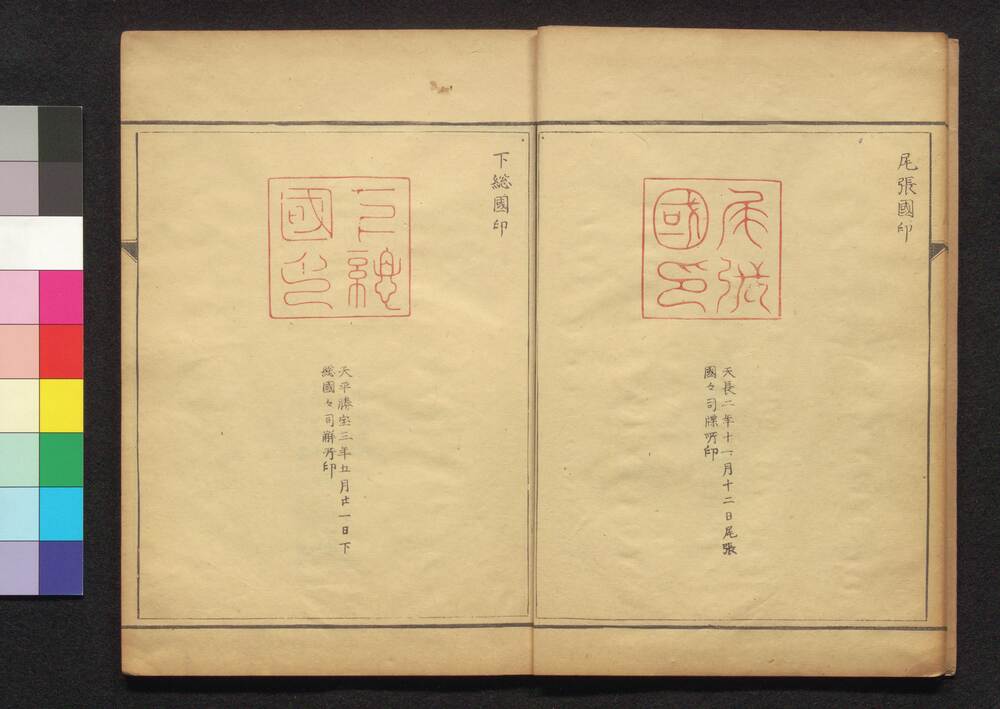 尾張國印
尾張
國印
天長二年十一月十二日尾張
國々司牒所印
下総國印
下總
國印
天平勝宝三年五月廿一日下
総國々司解所印